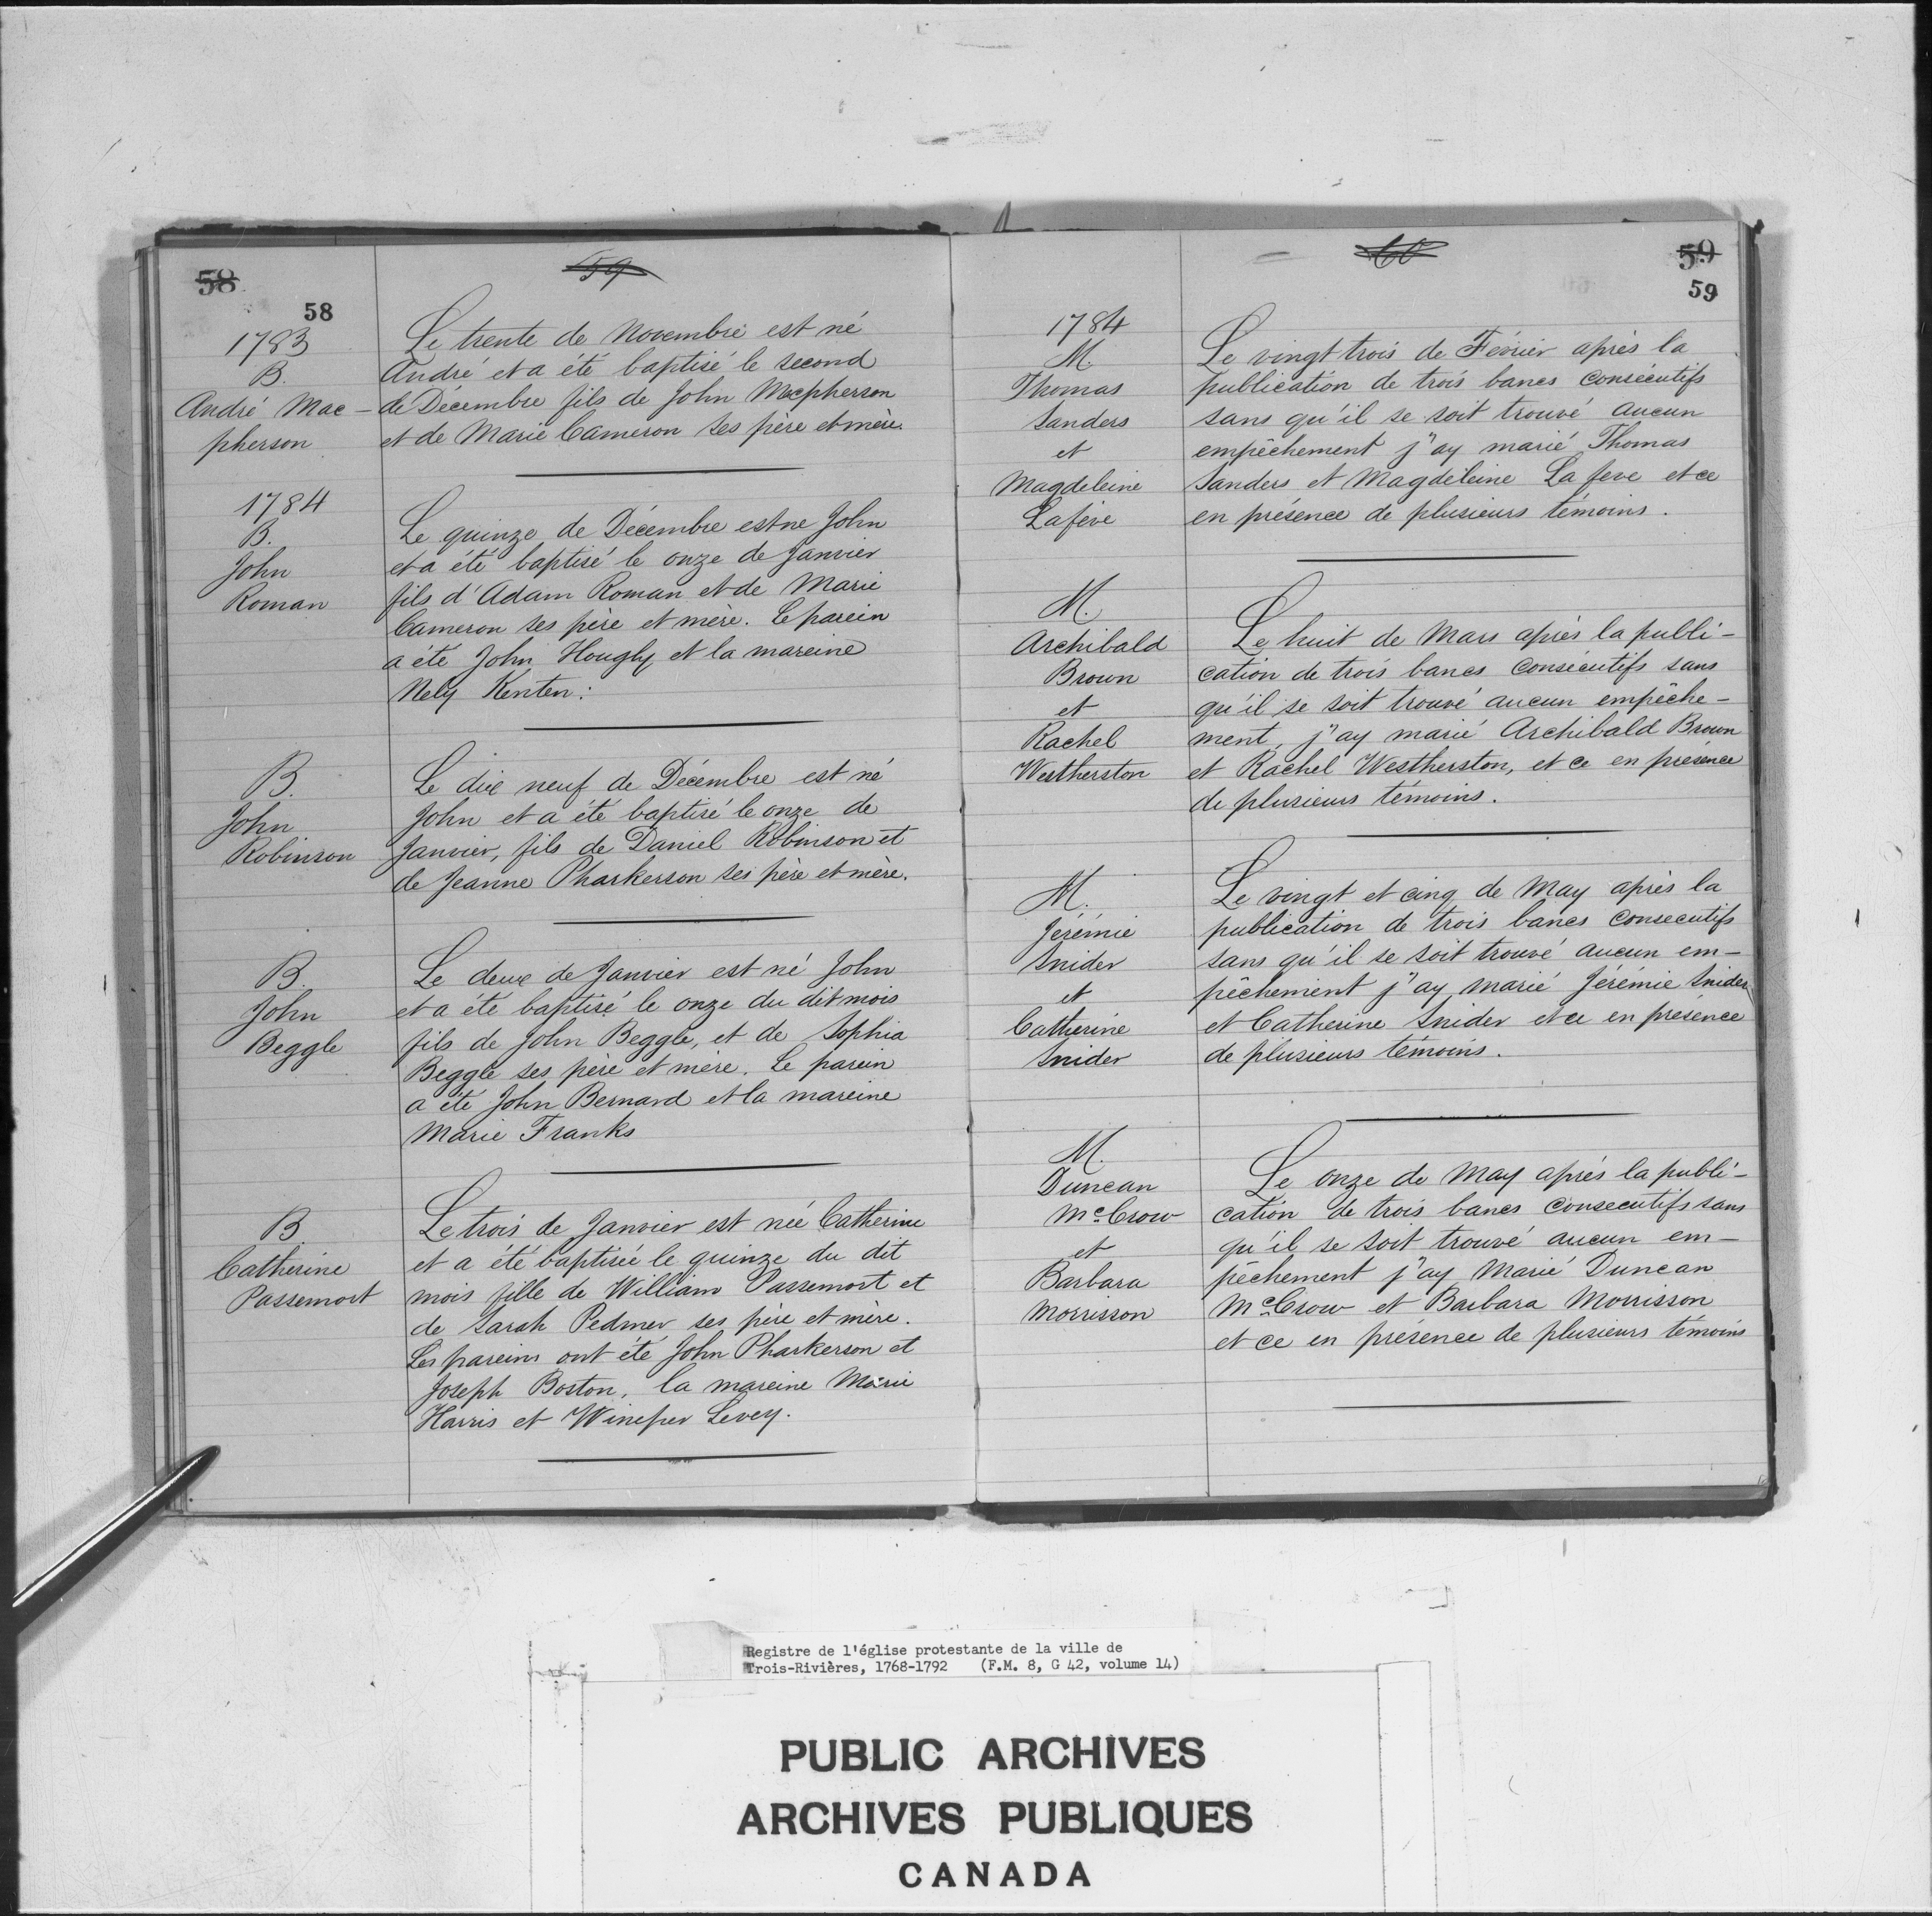 58
59
58
1783
B.
André Mac-
pherson
Le trente de Novembre est né
André et a été baptisé le second
de Décembre fils de John Macpherson
et de Marie Cameron ses père et mère.
1784
B.
John
Roman
Le quinze de Décembre est ne John
et a été baptisé le onze de Janvier
fils d'Adam Roman et de Marie
Cameron ses père et mère. Le parein
a été John Hougly et la mareine
Nely Kenten:
B.
John
Robinson
Le dix neuf de Décembre est né
John et a été baptisé le onze de
Janvier, fils de Daniel Robinson et
de Jeanne Pharkerson ses père et mère.
B.
John
Beggle
Le deux de Janvier est né John
et a été baptisé le onze du dit mois
fils de John Beggle, et de Sophia
Beggle ses père et mère. Le parein
a été John Bernard et la mareine
Marie Franks
B.
Catherine
Passemort
Le trois de Janvier est née Catherine
et a été baptisée le quinze du dit
mois fille de William Passemort et
de Sarah Pedmer ses père et mère.
Les pareins ont été John Pharkerson et
Joseph Boston, la mareine Marie
Harris et Winefer Levey.
60
59
59
1784
M.
Thomas
Sanders
et
Magdeleine
Lafève
Le vingt trois de Février après la
publication de trois bancs consécutifs
sans qu'il se soit trouvé aucun
empêchement j'ay marié Thomas
Sanders et Magdeleine La feve et ce
en présence de plusieurs témoins.
M.
Archibald
Brown
et
Rachel
Westherston
Le huit de Mars après la publi-
cation de trois bancs consécutifs sans
qu'il se soit trouvé aucun empêche-
ment, j'ay marié Archibald Brown
et Rachel Westherston, et ce en présence
de plusieurs témoins.
M.
Jérémie
Snider
et
Catherine
Snider
Le vingt et cinq de May après la
publication de trois bancs consecutifs
sans qu'il se soit trouvé aucun em-
pêchement j'ay marié Jérémie Snider
et Catherine Snider et ce en présence
de plusieurs témoins.
M.
Duncan
McCrow
et
Barbara
Morrisson
Le onze de May après la publi-
cation de trois bancs consecutifs sans
qu'il se soit trouvé aucun em-
pêchement j'ay Marié Duncan
McCrow et Barbara Morrisson
et ce en présence de plusieurs témoins
Registre de l'église protestante de la ville de
Trois-Rivières, 1768-1792 (F.M. 8, G 42, volume 14)
PUBLIC ARCHIVES
ARCHIVES PUBLIQUES
CANADA